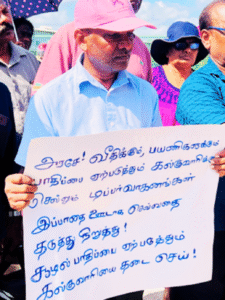 அரசே! வீதிக்கும், பயணிகளுக்கும்
பாதிப்பை ஏற்படுத்தும் கல்குவாரிக்கு
செல்லும் டிப்பர் வாகனங்கள்
இப்பாதை ஊடாக செல்வதை
தடுத்து நிறுத்து!
சூழல் பாதிப்பை ஏற்படுத்தும்
கல்குவாரியை தடை செய்!